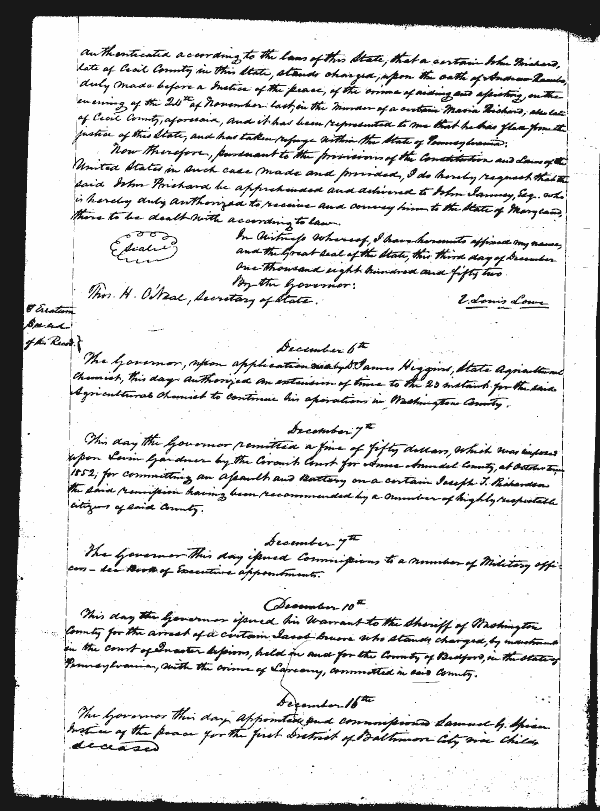 authenticated according to the laws of this State, that a certain John Prichard,
late of Cecil County in this State, stands charged, upon the oath of Andrew
duly made before a Justice of the peace, of the crime of aiding and assisting, on the
evening of the 24th of November last, in the Murder of a certain Maria Prichard, also late
of Cecil County, aforesaid, and it has been represented to me that he has fled from the
justice of this State, and has taken refuge within the State of Pennsylvania.
Now therefore, pursuant to the provisions of the Constitution and Laws of the
United States in such case made and provided, I do hereby request that the
said John Prichard be apprehended and delivered to John Janney, Esq. who
is hereby duly authorized to receive and convey him to the State of Maryland,
there to be dealt with according to law.
Seal
In Witness whereof, I have hereunto affixed my name,
and the Great Seal of the State, this third day of December
one thousand eight hundred and fifty two
By the Governor:
E. Louis Lowe
Thos. H. O'Neal, Secretary of State.
of the Record.
December 6th
The Governor, upon application made by Dr. James Higgins, State Agricultural
Chemist, this day authorized an extension of time to the 23 instant for the said
Agricultural Chemist to continue his operations in Washington County.
December 7th
This day the Governor remitted a fine of fifty dollars, which was imposed
upon Levin Gardner by the Circuit Court for Anne Arundel County, at October term
1852, for committing an Assault and Battery on a certain Joseph T. Richardson
the said remission having been recommended by a number of highly respectable
citizens of said County.
December 7th
The Governor this day issued Commissions to a number of Military offi-
cers - see Book of Executive appointments.
December 10th
This day the Governor issued his Warrant to the Sheriff of Washington
County for the arrest of a certain Jacob who stands charged, by indictment
in the court of Quarter Sessions, held in and for the County of Bedford, in the State of
Pennsylvania, with the crime of Larceny, committed in said County.
December 16th
The Governor this day appointed and commissioned Samuel G. Spicer
Justice of the peace for the first District of Baltimore City vice Childs
deceased